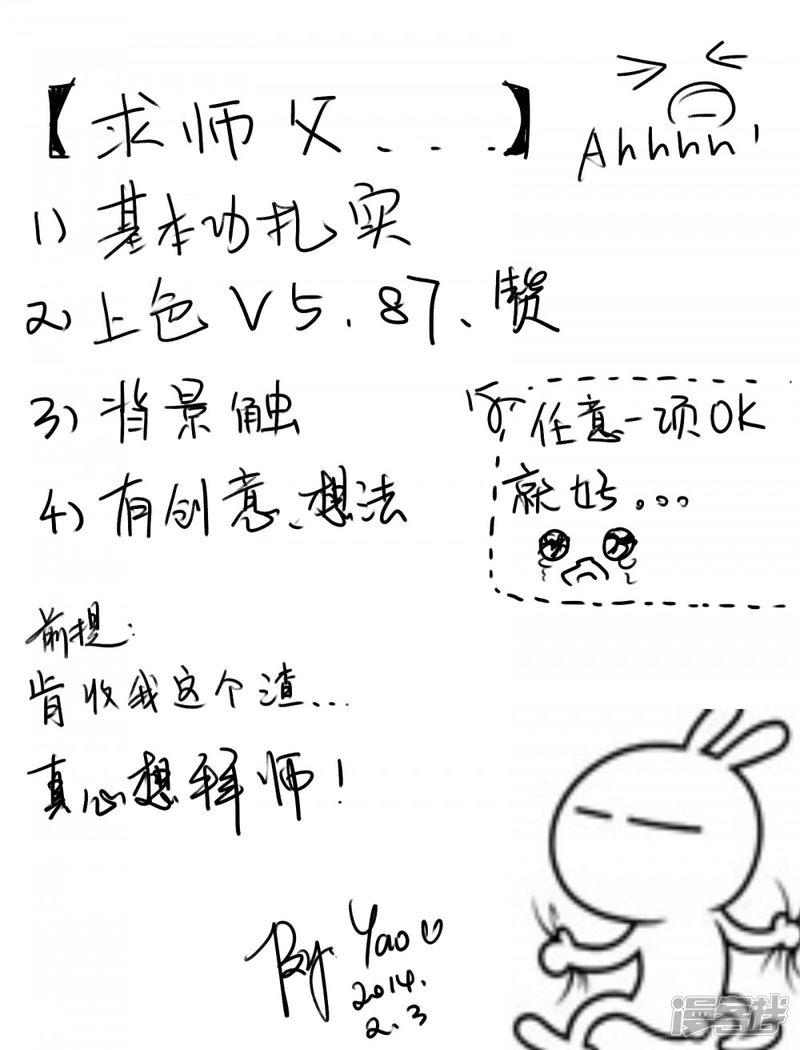 【求师父....】
Ahhhh!
1)基本功扎实
2)上色V5、87、赞
3)背景触
4)有创意、想法
任意一项OK
就好...
前提:
肯收我这个渣...
真心想拜师!
By Yao
2014.
2.3
漫客栈